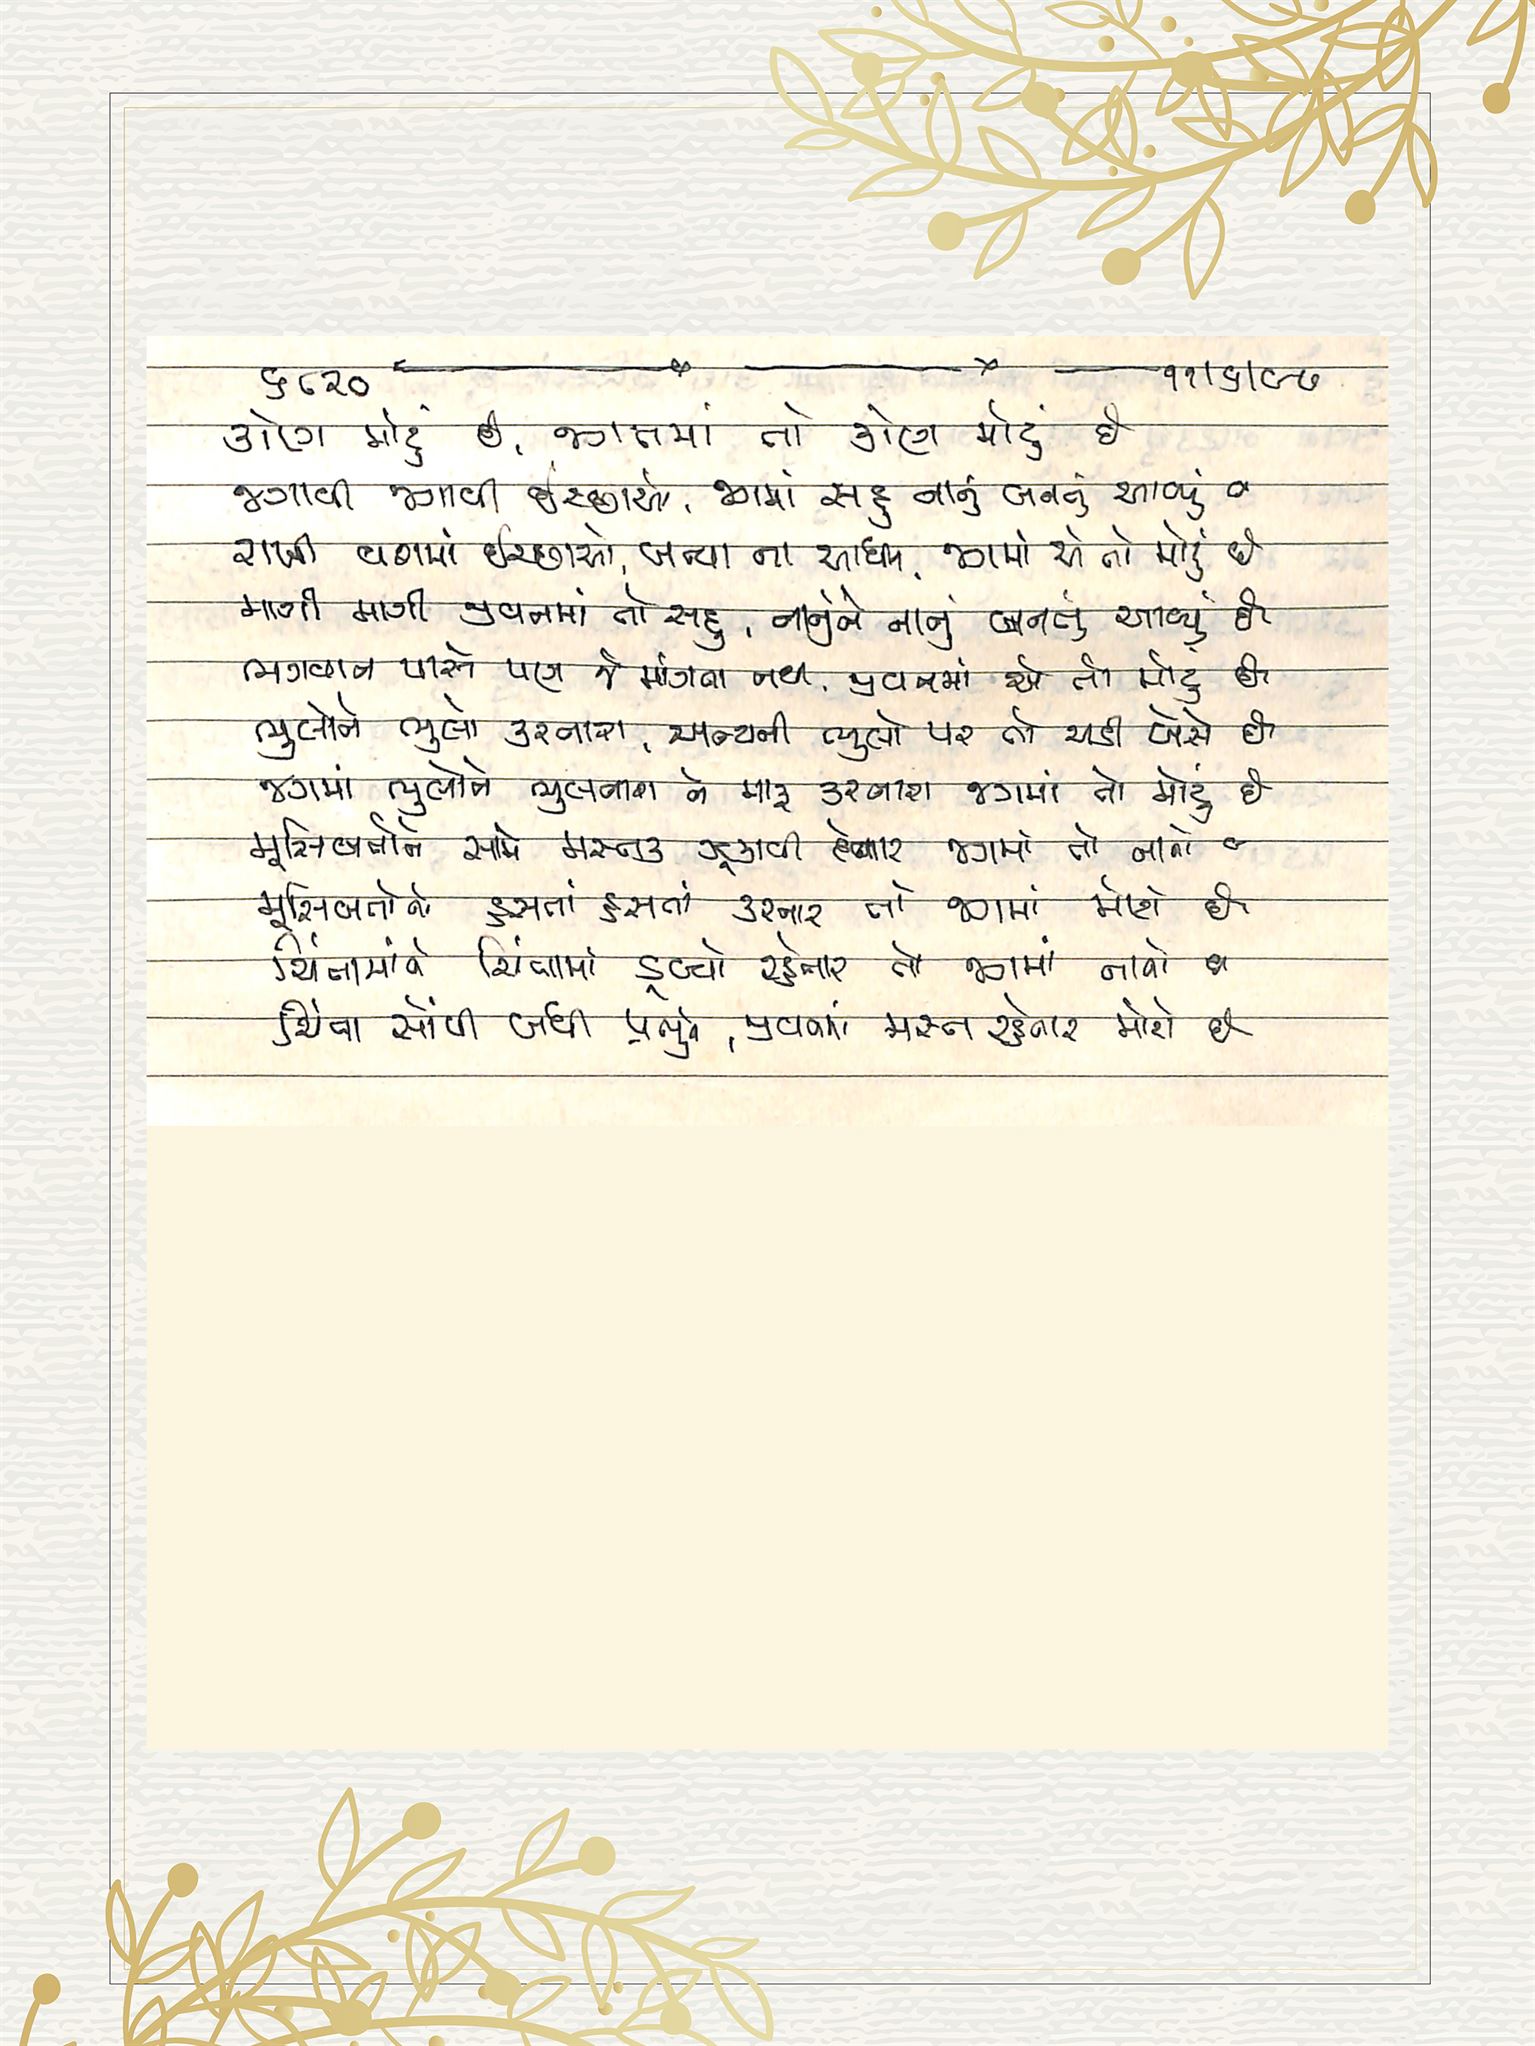 ૬૮૨૦ ૧૧/૬/૯૭
કોણ મોટું છે, જગતમાં તો કોણ મોટું છે
જગાવી જગાવી ઈચ્છાઓ, જગમાં સહુ નાનું બનતું આવ્યું છે
રાખી વશમાં ઈચ્છાઓ, બન્યા ના આધીન, જગમાં એ તો મોટું છે
માગી માગી જીવનમાં તો સહુ, નાનુંને નાનું બનતું આવ્યું છે
ભગવાન પાસે પણ જે માંગતા નથી, જીવનમાં એ તો મોટું છે
ભુલોને ભુલો કરનારા, અન્યની ભુલો પર તો ચડી બેસે છે
જગમાં ભુલોને ભુલનારા ને માફ કરનારા જગમાં તો મોટું છે
મૂસિબતોને સામે મસ્તક ઝૂકાવી દેનાર જગમાં તો નાનો છે
મૂસિબતોને હસતાં હસતાં કરનાર તો જગમાં મોટો છે
ચિંતામાંને ચિંતામાં ડૂબ્યો રહેનાર તો જગમાં નાનો છે
ચિંતા સોંપી બધી પ્રભુને, જીવનમાં મસ્ત રહેનાર મોટો છે